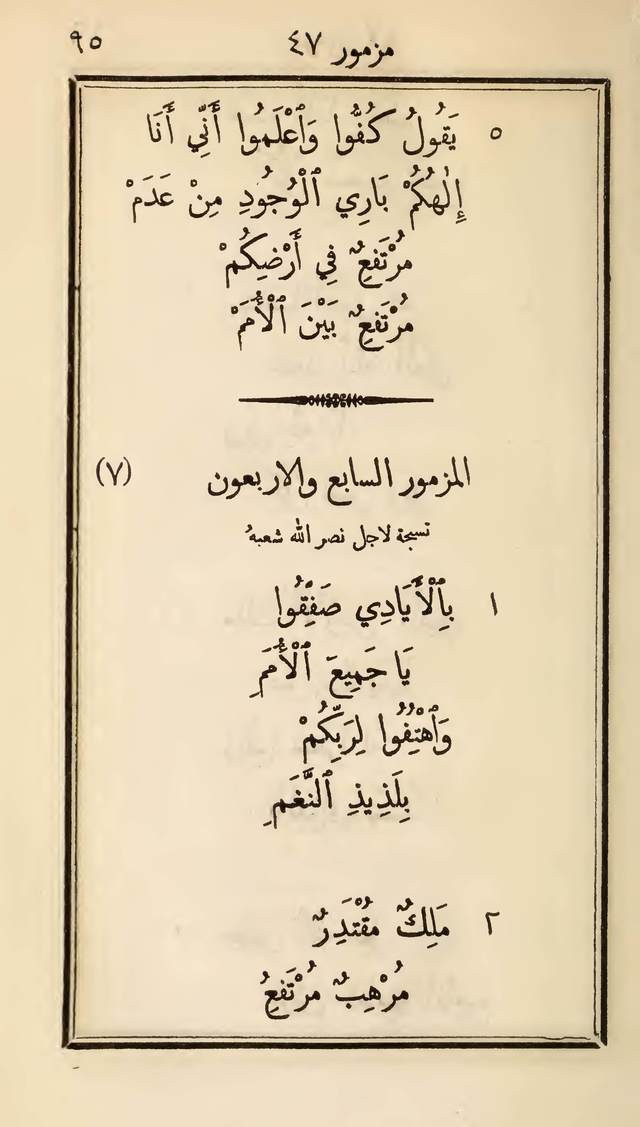 مزمور ٤٧ ٩٥
٥ يَقُولُ كُفُّوا وَٱعْلَمُوا أَنِّي أَنَا
إِلٰهُكُمْ بَارِي ٱلْوُجُودِ مِنْ عَدَمْ
مُرْتَفِعٌ فِي أَرْضِكُمْ
مُرْتَفِعٌ بَيْنَ ٱلْأُمَمْ
المزمور السابع والاربعون (٧)
تسبحة لاجل نصر الله شعبهُ
١ بِٱلْأَيَادِي صَفِّقُوا
يَا جَمِيعَ ٱلْأُمَمِ
وَٱهْتِفُوا لِرَبِّكُمْ
بِلَذِيذِ ٱلنَّغَمِ
٢ مَلِكٌ مُقْتَدِرٌ
مُرْهِبٌ مُرْتَفِعُ